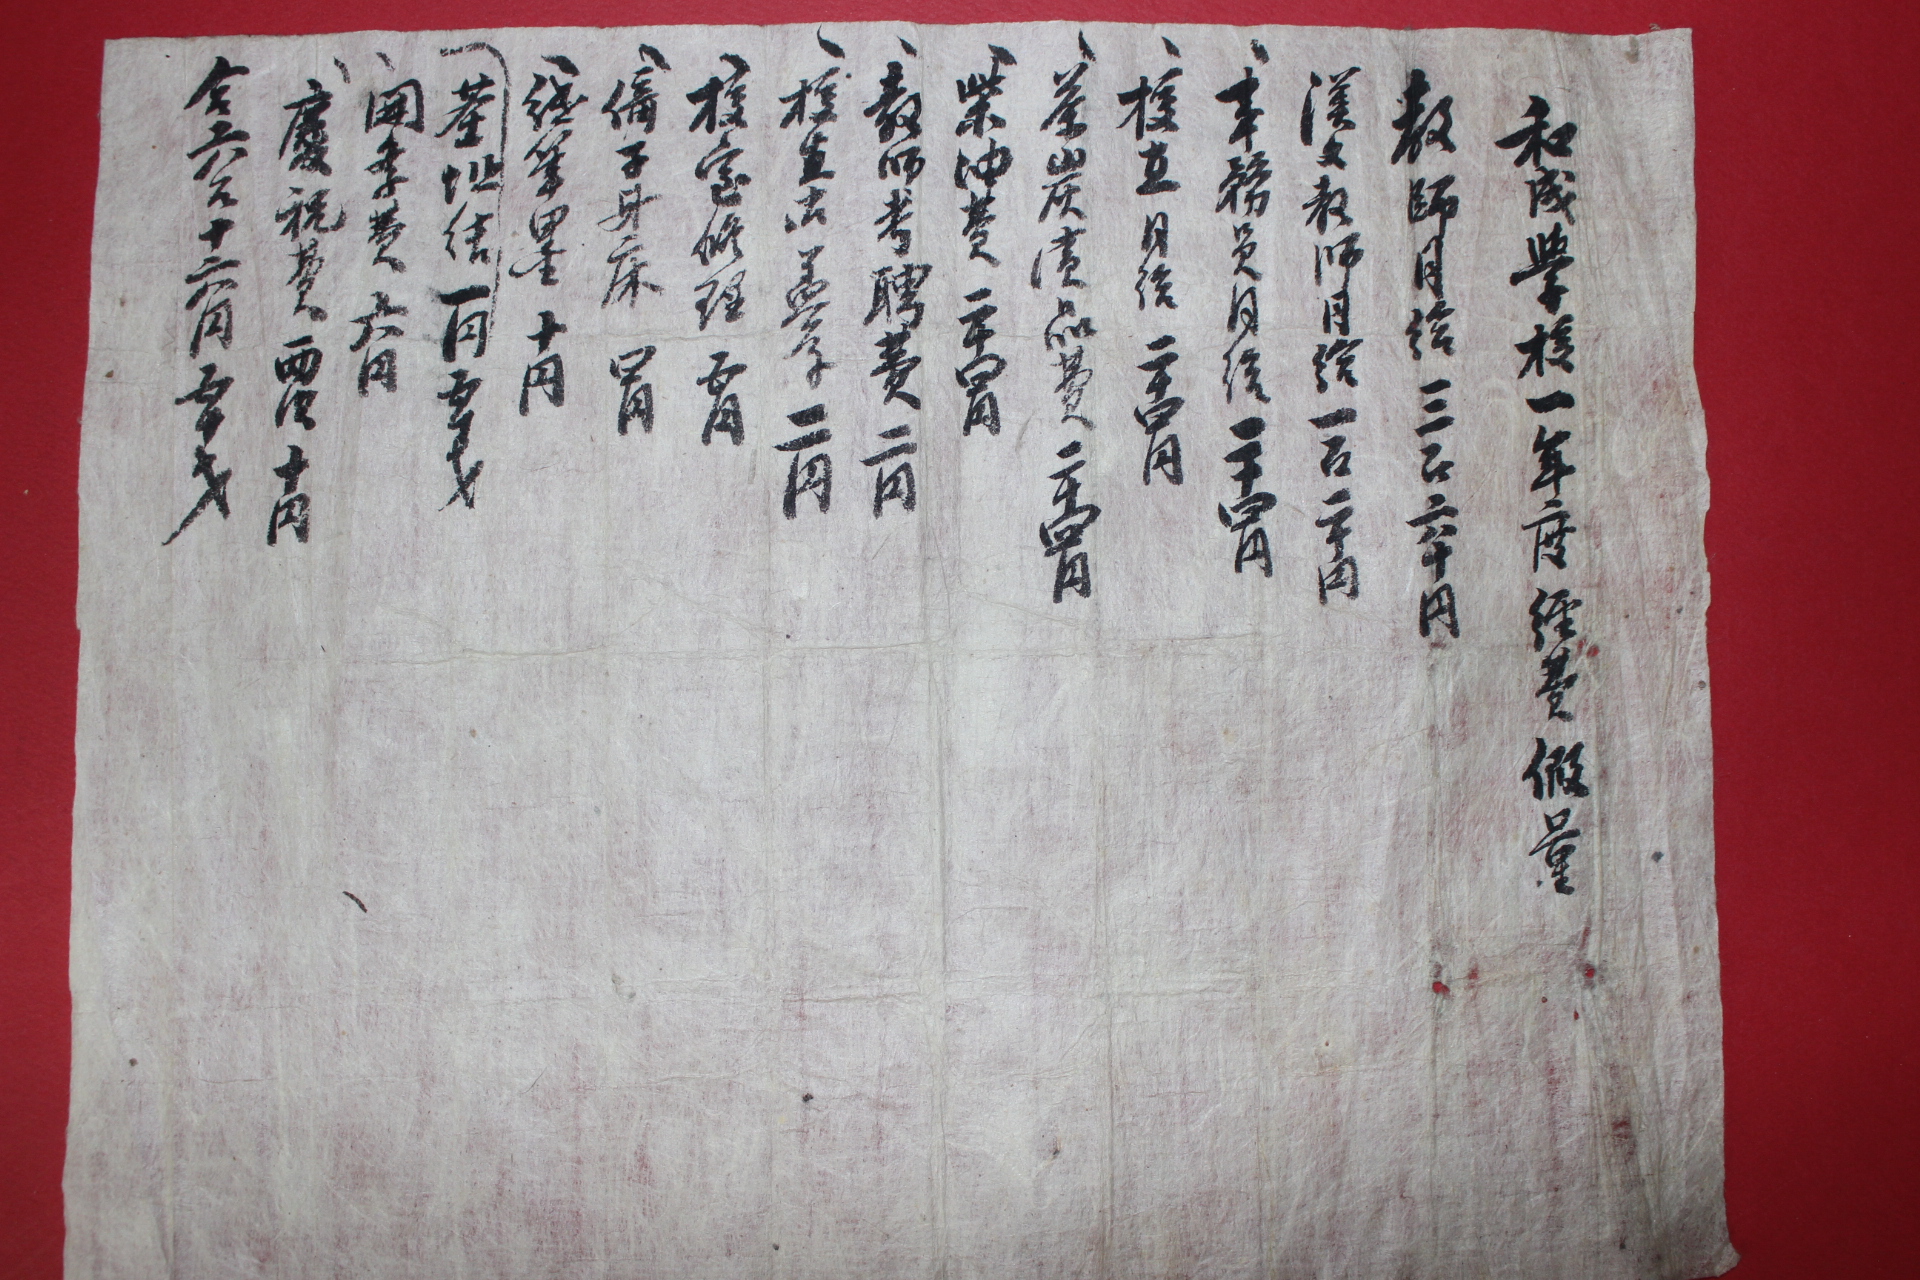 和成學校一年度經費假量
教師月給 三百六十円
漢文教師月給 一百二十円
事務員月給 二十四円
校直月給 二十四円
茶炭 費 二十四円
柴油費 二十四円
教師考聘費 二円
校 二円
校室修理 五円
子 床 四円
紙筆墨 十円
基址 一円五十戔
開 費 六円
慶祝費 両次 十円
合六百 十六円五十戔